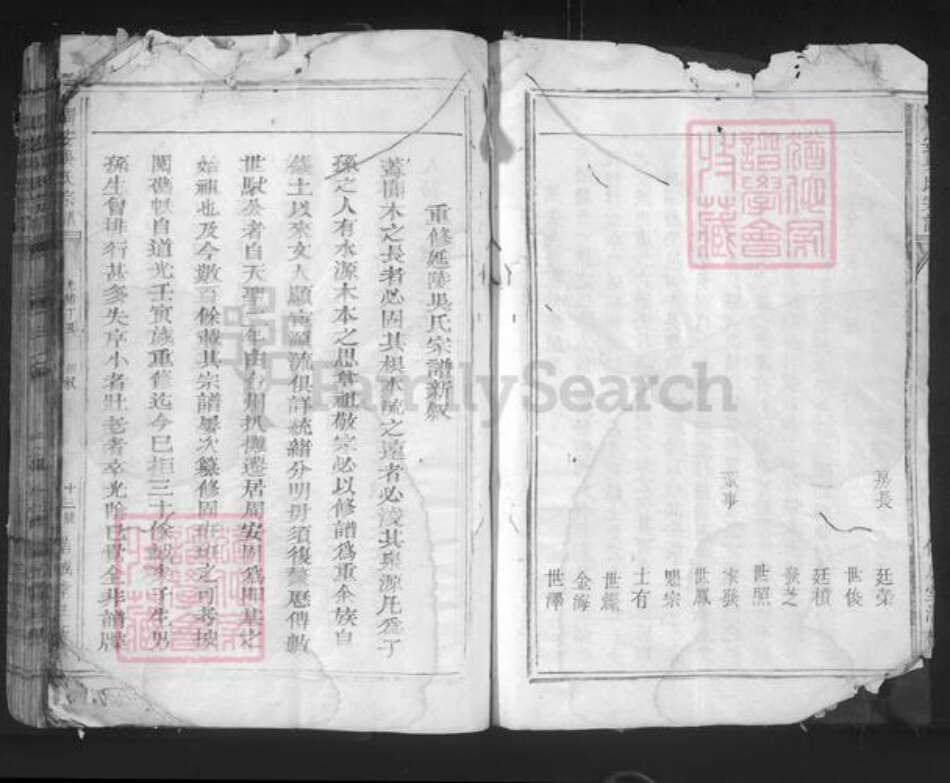 房長
廷榮
世俊
廷積
發芝
董事
世照
家發
世鳳
士有
世耀
金海
世澤
重修延陵吳氏宗譜新敘
蓋聞木之長者必固其根本流之遠者必浚其泉源凡為子
孫之人有水源木本之思尊祖敬宗必以修譜為重余族自
錢土以來文人顯宦源流俱詳統緒分明毋須復贅歷傳數
世 公者自天聖二年由台州 遷居周安 為開基之
始祖也及今數百餘載其宗譜屢次纂修固班班之可考披
閱舊帙自道光壬寅歲重修迄今已拒三十餘載未子生男
孫生曾排行甚多失序小者壯老者卒光陰已 全非譜牒
FamilySearch
猶他家譜學會收藏
猶他家譜學會收藏